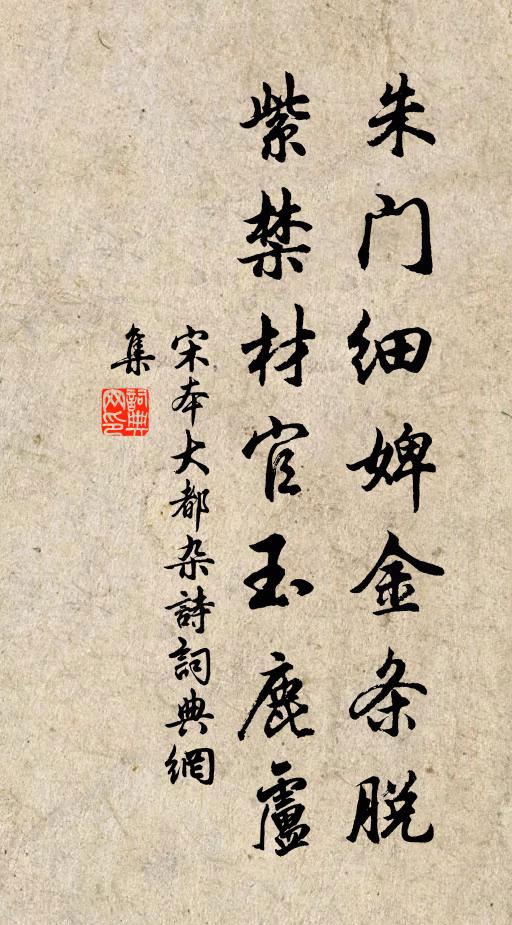 朱门细婢金条脱
紫禁材官玉鹿卢
宋本大都杂詩詞典網
集
詞典
网印